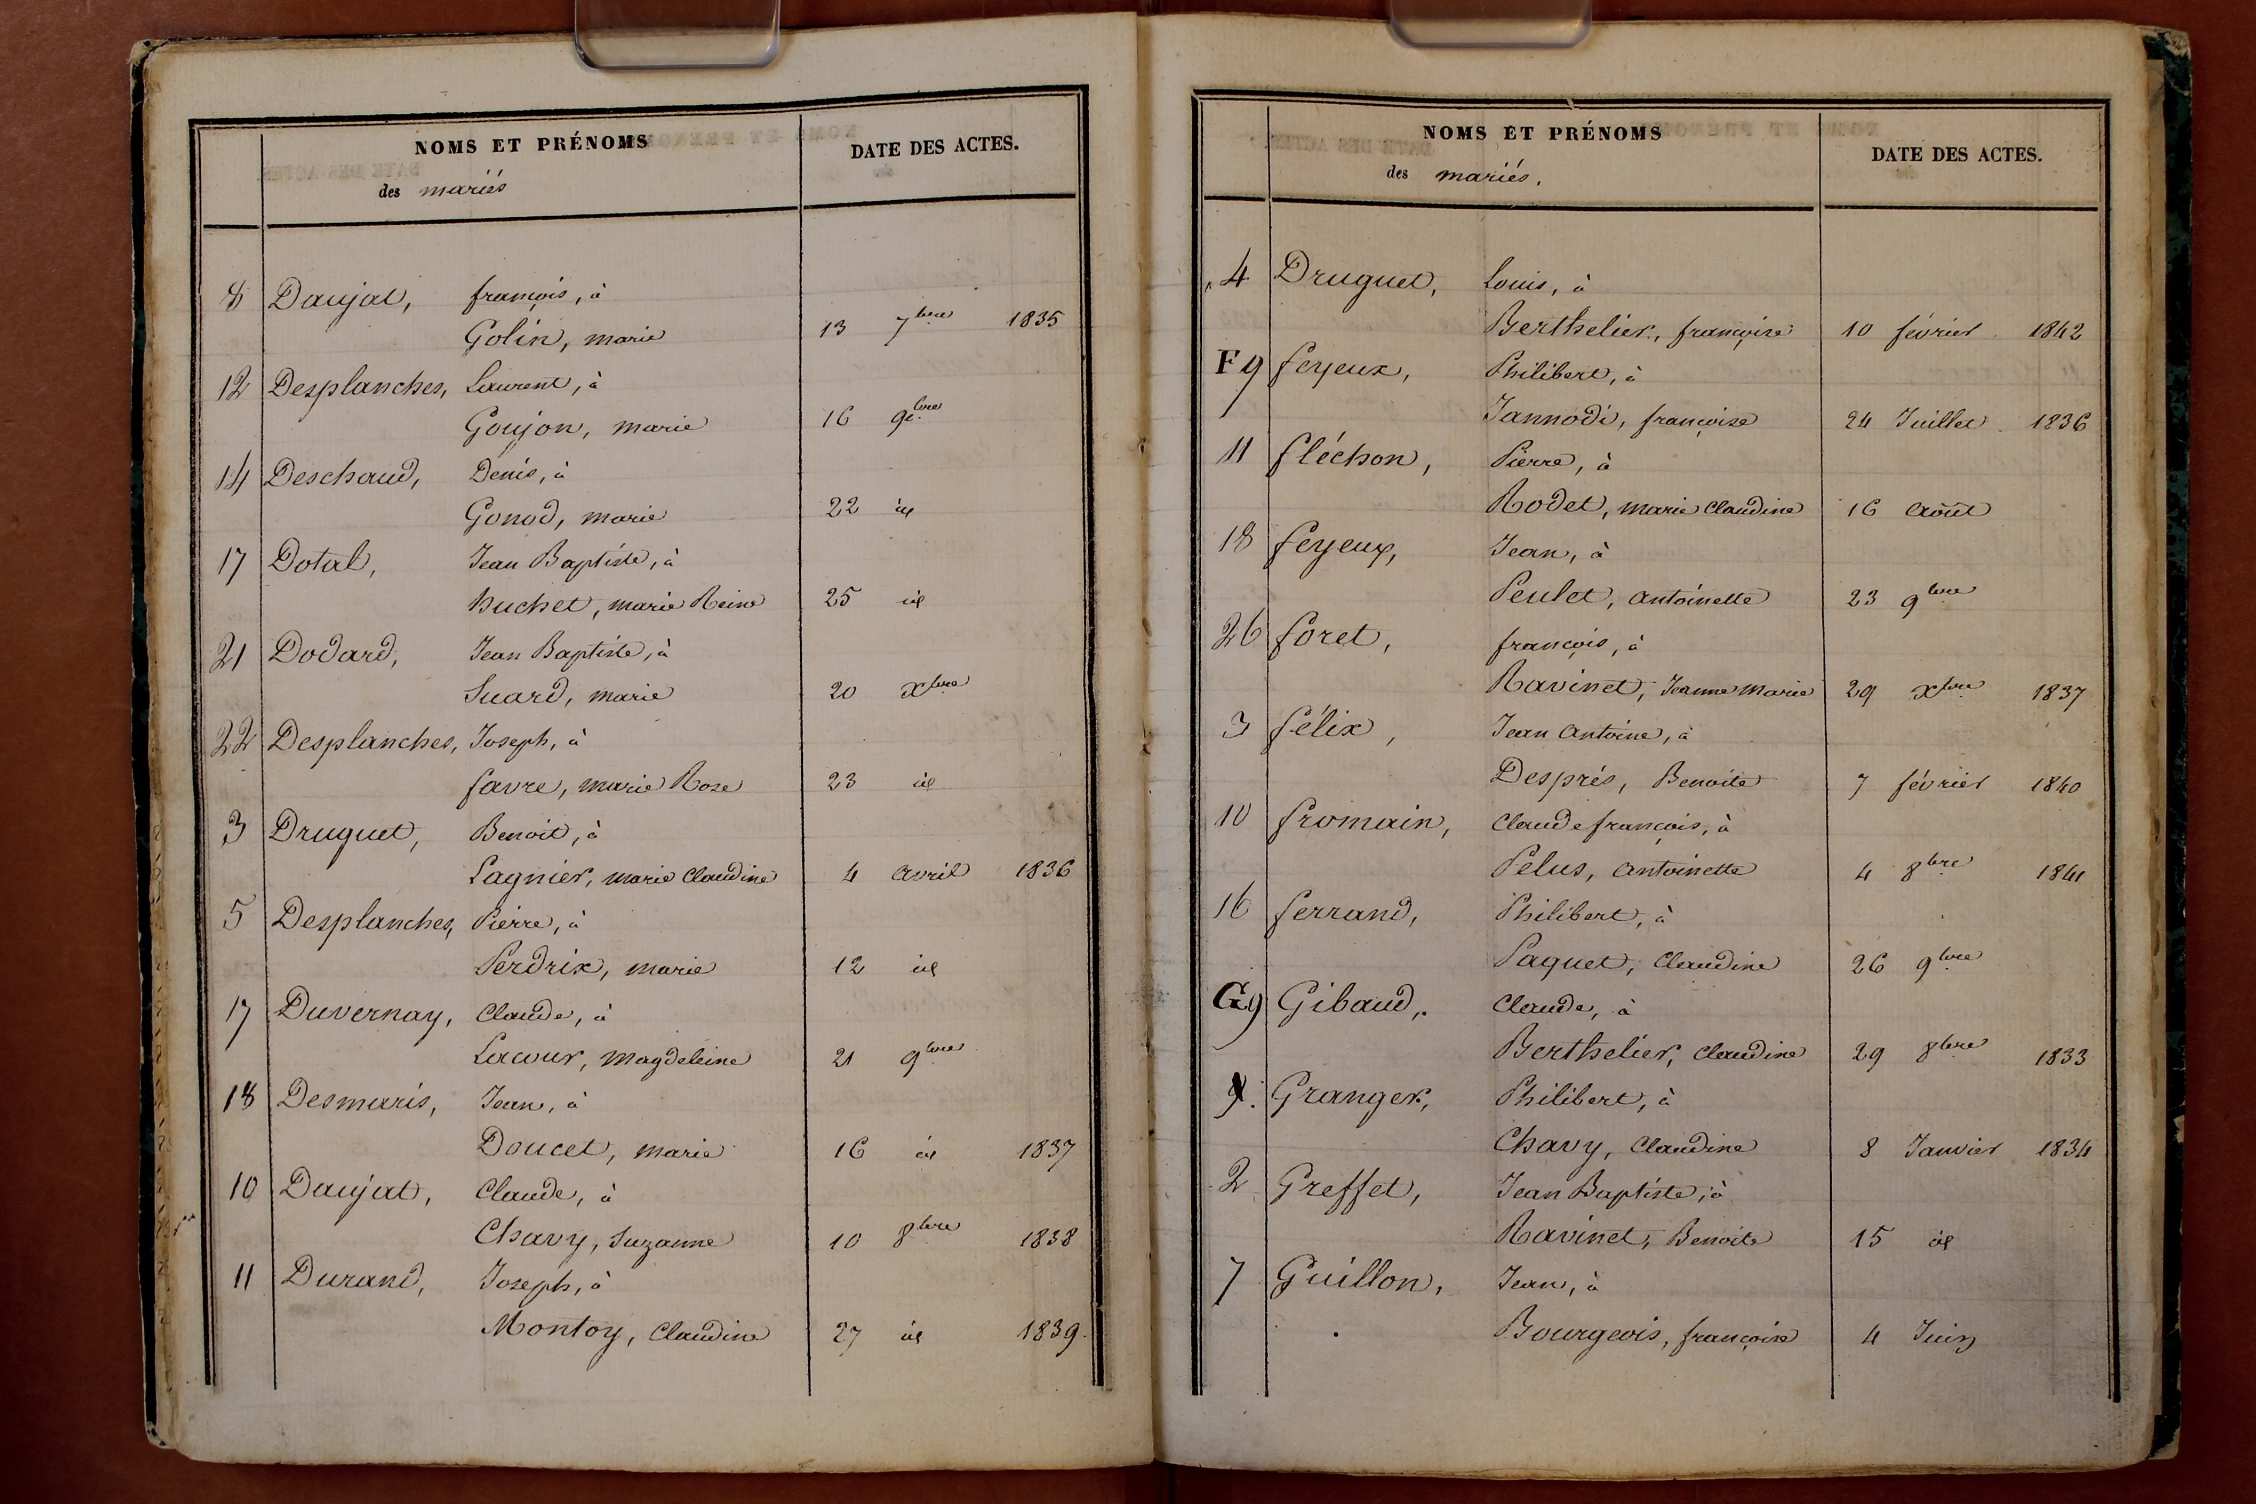 NOMS ET PRÉNOMS
DATE DES ACTES.
des mariés
8 Daujat, françois, à
Golin, marie 13 7bre 1835
12 Desplanches, Laurent, à
Goujon, marie 16 9bre
14 Deschaud, Denis, à
Gonod, marie 22 id
17 Dotal, Jean Baptiste, à
huchet, marie Reine 25 id
21 Dodard, Jean Baptiste, à
Suard, marie 20 xbre
22 Desplanches, Joseph, à
favre, marie Rose 23 id
3 Druguet, Benoit, à
Lagnier, marie Claudine 4 avril 1836
5 Desplanches, Pierre, à
Perdrix, marie 12 id
17 Duvernay, Claude, à
Lacour, Magdeleine 21 9bre
18 Desmaris, Jean, à
Doucet, marie 16 id 1837
10 Daujat, Claude, à
Chavy, Suzanne 10 8bre 1838
11 Durand, Joseph, à
Montoy, Claudine 27 id 1839
NOMS ET PRÉNOMS
DATE DES ACTES.
des mariés.
4 Druguet, Louis, à
Berthelier, françoise 10 février 1842
F 9 feyeux, Philibert, à
Jannodi, françoise 24 Juillet 1836
11 fléchon, Pierre, à
Rodet, marie Claudine 16 Août
18 feyeux, Jean, à
Peulet, antoinette 23 9bre
26 foret, françois, à
Ravinet, Jeanne Marie 29 xbre 1837
3 félix, Jean Antoine, à
Després, Benoite 7 février 1840
10 fromain, Claude françois, à
Pelus, antoinette 4 8bre 1841
16 ferrand, Philibert, à
Paquet, Claudine 26 9bre
G 9 Gibaud, Claude, à
Berthelier, Claudine 29 8bre 1833
Granger, Philibert, à
Chavy, Claudine 8 Janvier 1834
2 Greffet, Jean Baptiste, à
Ravinet, Benoite 15 id
7 Guillon, Jean, à
Bourgeois, françoise 4 Juin